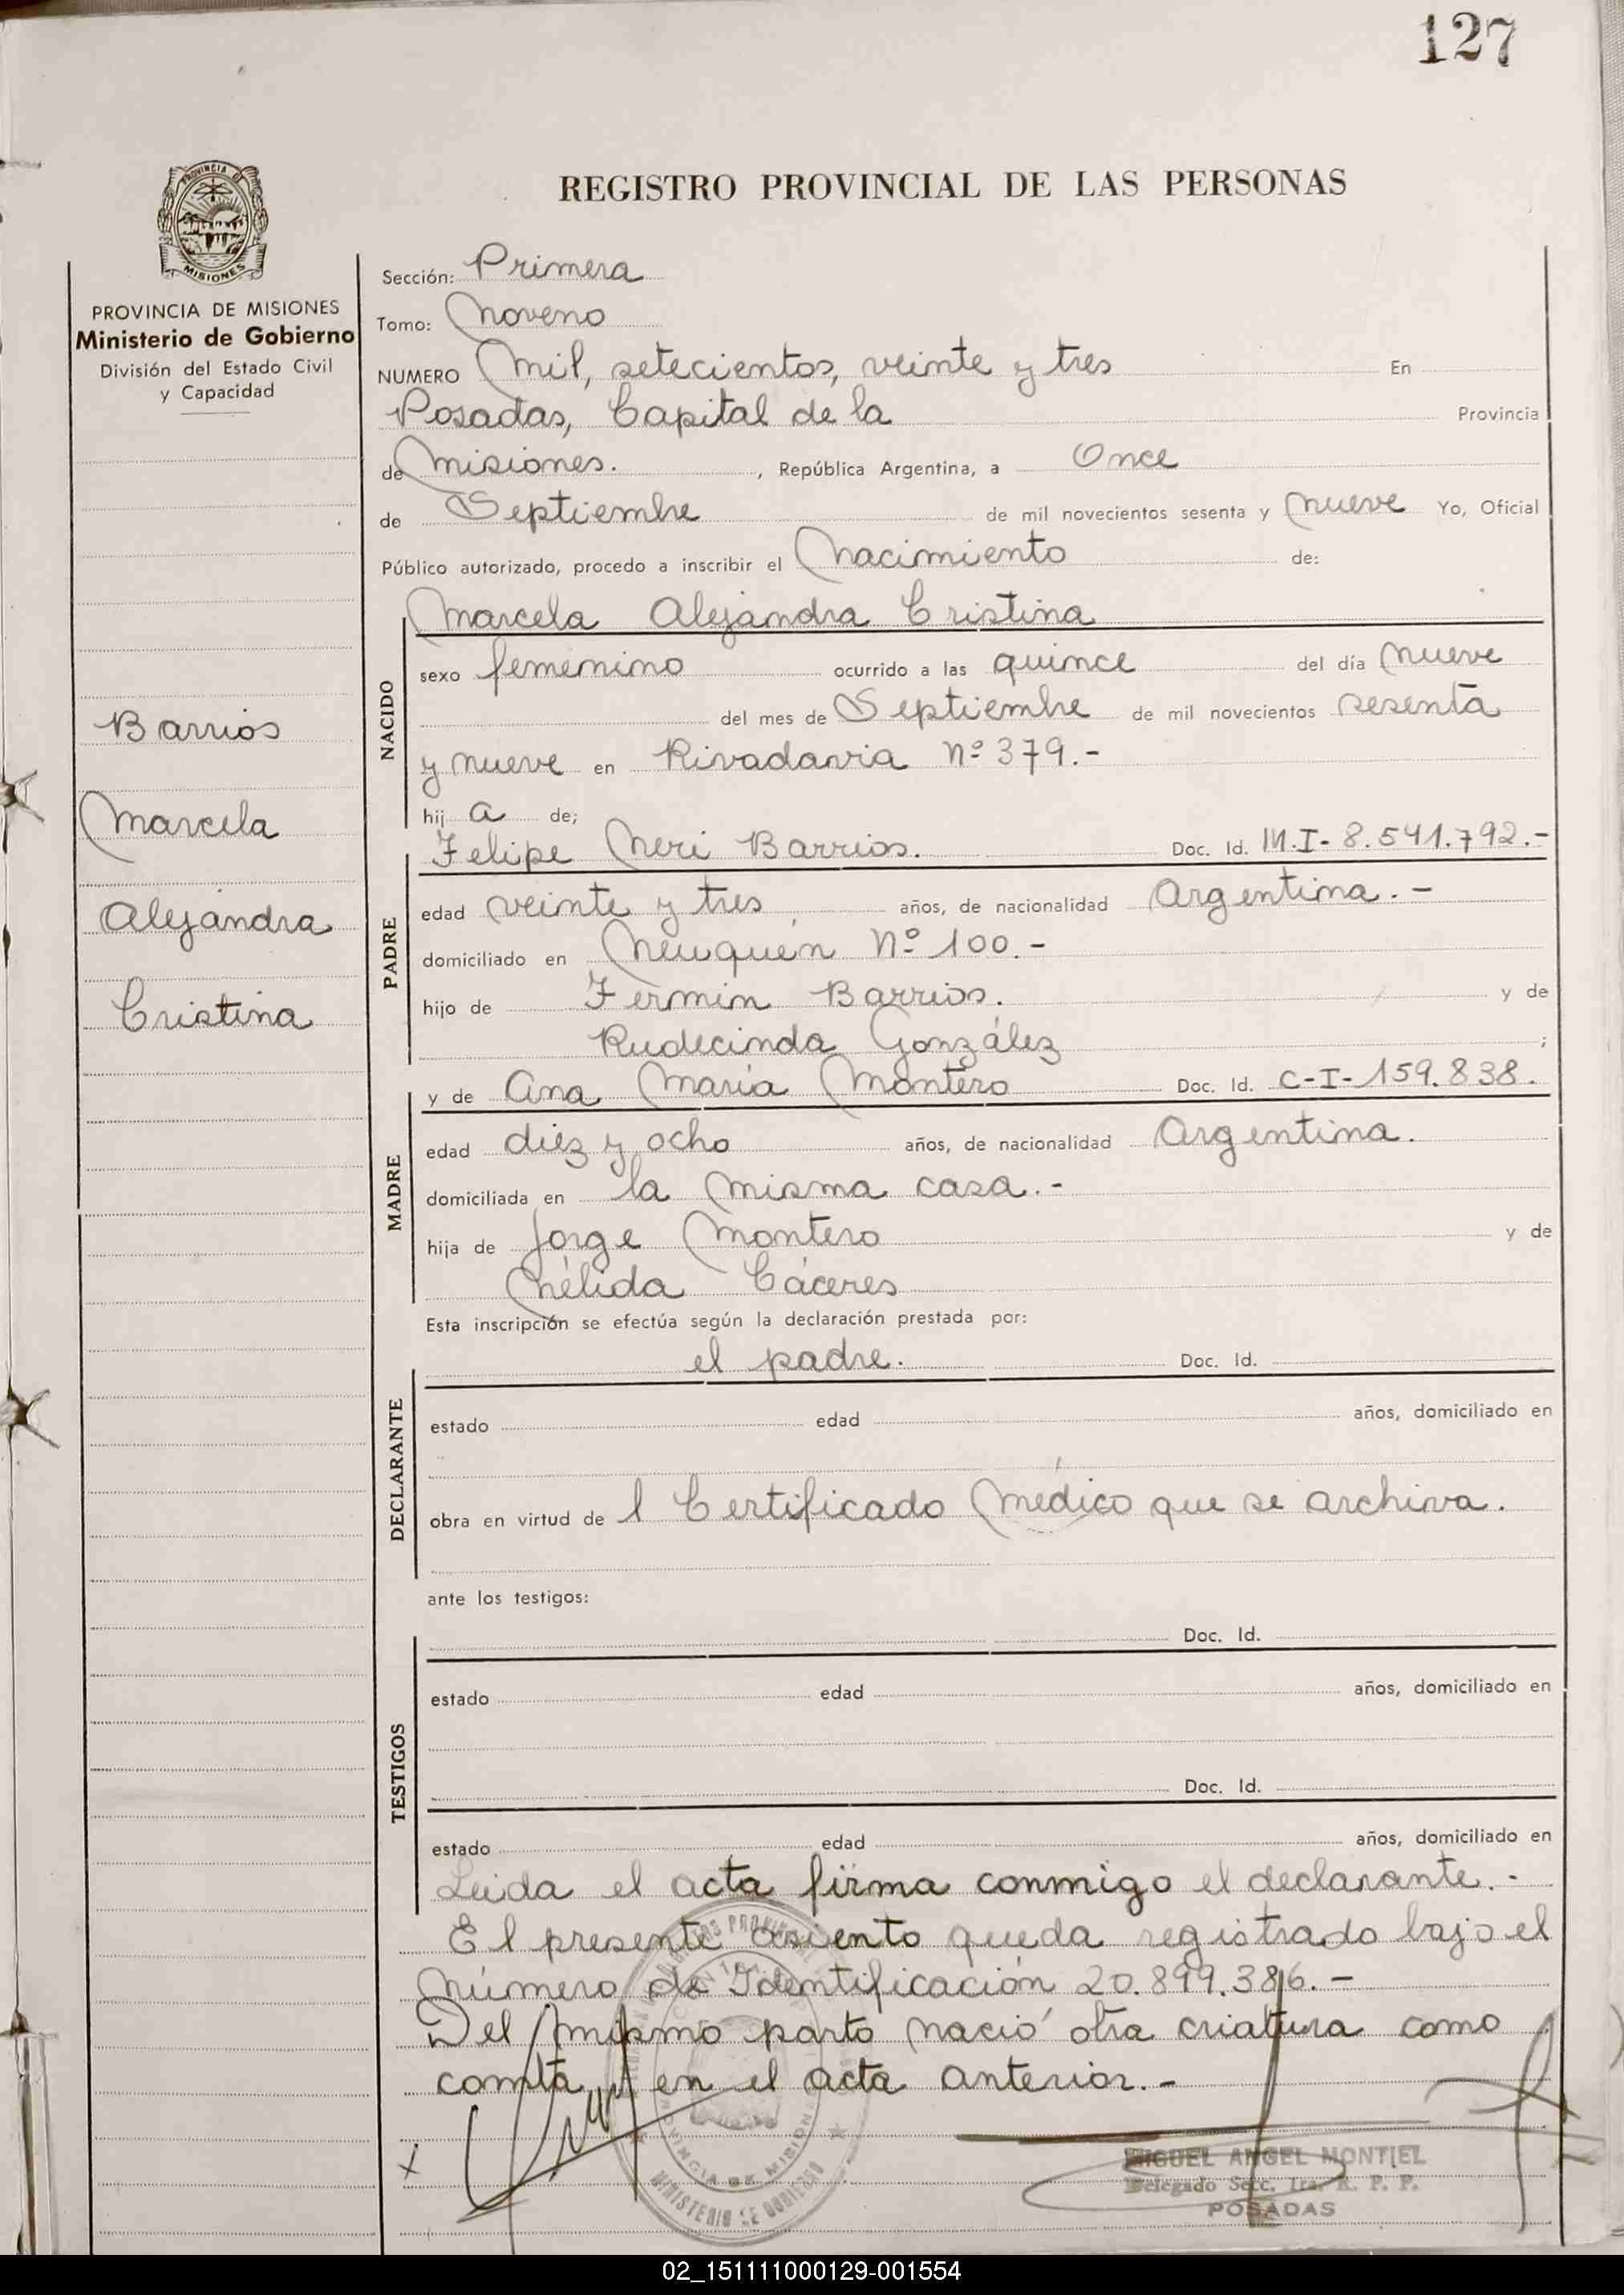 127
PROVINCIA DE
MISIONES
REGISTRO PROVINCIAL DE LAS PERSONAS
PROVINCIA DE MISIONES
Ministerio de Gobierno
División del Estado Civil
y Capacidad
Barrios
Marcela
Alejandra
Cristina
Sección: Primera
Tomo: Noveno
NUMERO Mil, setecientos, veinte y tres En
Posadas, Capital de la Provincia
de Misiones. , República Argentina, a Once
de Septiembre de mil novecientos sesenta y nueve Yo, Oficial
Público autorizado, procedo a inscribir el Nacimiento de:
Marcela Alejandra Cristina
NACIDO
sexo femenino ocurrido a las quince del día nueve
del mes de Septiembre de mil novecientos sesenta
y nueve en Rivadavia Nº 379.-
hij a de;
Felipe Neri Barrios. Doc. Id. M.I- 8.541.792.-
PADRE
edad veinte y tres años, de nacionalidad Argentina.-
domiciliado en Neuquén Nº 100.-
hijo de Fermin Barrios. y de
Rudecinda González ;
y de Ana María Montero Doc. Id. C-I-159.838.
MADRE
edad diez y ocho años, de nacionalidad Argentina.
domiciliada en la misma casa.-
hija de Jorge Montero y de
Nélida Cáceres
Esta inscripción se efectúa según la declaración prestada por:
el padre. Doc. Id.
DECLARANTE
estado edad años, domiciliado en
obra en virtud de l Certificado Médico que se archiva.
ante los testigos:
Doc. Id.
TESTIGOS
estado edad años, domiciliado en
Doc. Id.
estado edad años, domiciliado en
Leida el acta firma conmigo el declarante.-
El presente asiento queda registrado bajo el
Número de Identificación 20.899.386.-
Del mismo parto nació otra criatura como
comsta en el acta anterior.-
x
MINISTERIO DE GOBIERNO
PROVINCIA DE MISIONES
MIGUEL ANGEL MONTIEL
Delegado Secc. 1ra. R. P. P.
POSADAS
02_151111000129-001554